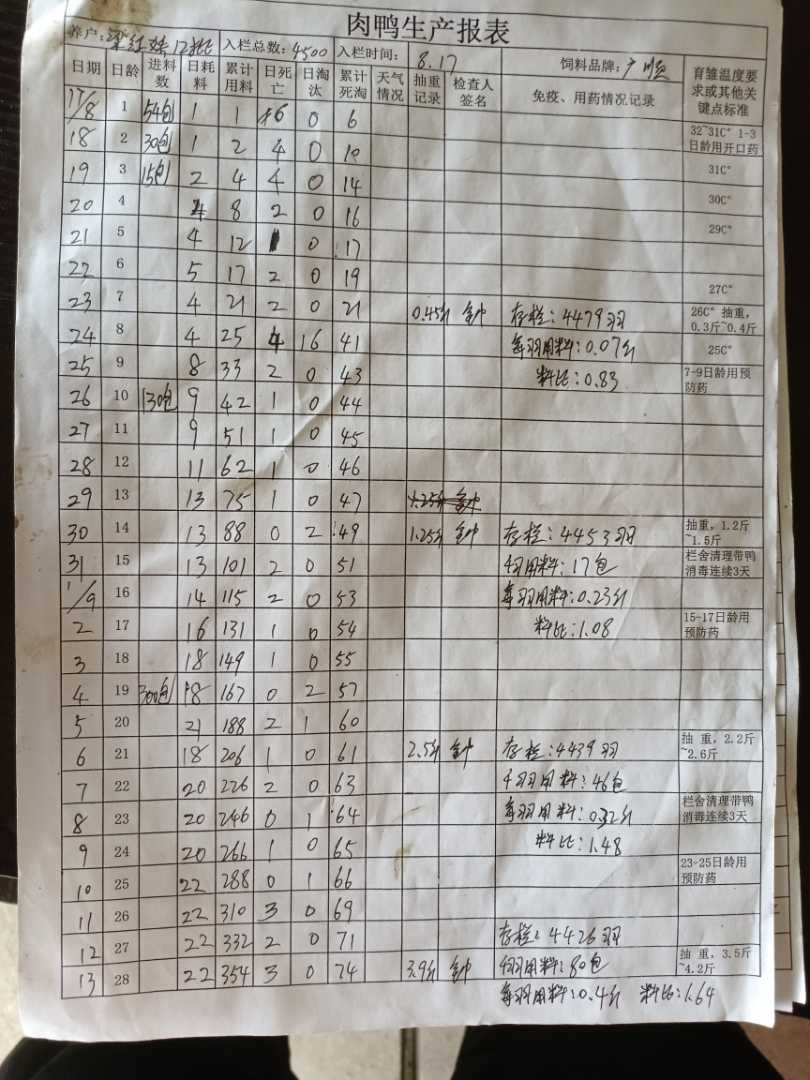 肉鸭生产报表
养户:梁红妹12批 入栏总数:4500 入栏时间: 8.17 饲料品牌:广顺
日期 日龄 进料数 日耗料 累计用料 日死亡 日淘汰 累计死淘 天气情况 抽重记录 检查人签名 免疫、用药情况记录 育雏温度要求或其他关键点标准
17/8 1 54包 1 1 6 0 6
18 2 30包 1 2 4 0 10 32~31C° 1-3日龄用开口药
19 3 15包 2 4 4 0 14 31C°
20 4 4 8 2 0 16 30C°
21 5 4 12 1 0 17 29C°
22 6 5 17 2 0 19 27C°
23 7 4 21 2 0 21 0.45斤 存栏:4479羽 26C° 抽重,0.3斤~0.4斤
24 8 4 25 4 16 41 每羽用料:0.07斤 25C°
25 9 8 33 2 0 43 料比:0.83 7-9日龄用预防药
26 10 130包 9 42 1 0 44
27 11 9 51 1 0 45
28 12 11 62 1 0 46
29 13 13 75 1 0 47 1.25斤
30 14 13 88 0 2 49 1.25斤 存栏:4453羽 抽重,1.2斤~1.5斤
31 15 13 101 2 0 51 千羽用料:17包 栏舍清理带鸭消毒连续3天
1/9 16 14 115 2 0 53 每羽用料:0.23斤
2 17 16 131 1 0 54 料比:1.08 15-17日龄用预防药
3 18 18 149 1 0 55
4 19 300包 18 167 0 2 57
5 20 21 188 2 1 60
6 21 18 206 1 0 61 2.5斤 存栏:4439羽 抽 重,2.2斤~2.6斤
7 22 20 226 2 0 63 千羽用料:46包
8 23 20 246 0 1 64 每羽用料:0.32斤 栏舍清理带鸭消毒连续3天
9 24 20 266 1 0 65 料比:1.48
10 25 22 288 0 1 66 23-25日龄用预防药
11 26 22 310 3 0 69
12 27 22 332 2 0 71 存栏:4426羽
13 28 22 354 3 0 74 3.9斤 千羽用料:80包 抽 重,3.5斤~4.2斤
每羽用料:0.4斤 料比:1.64